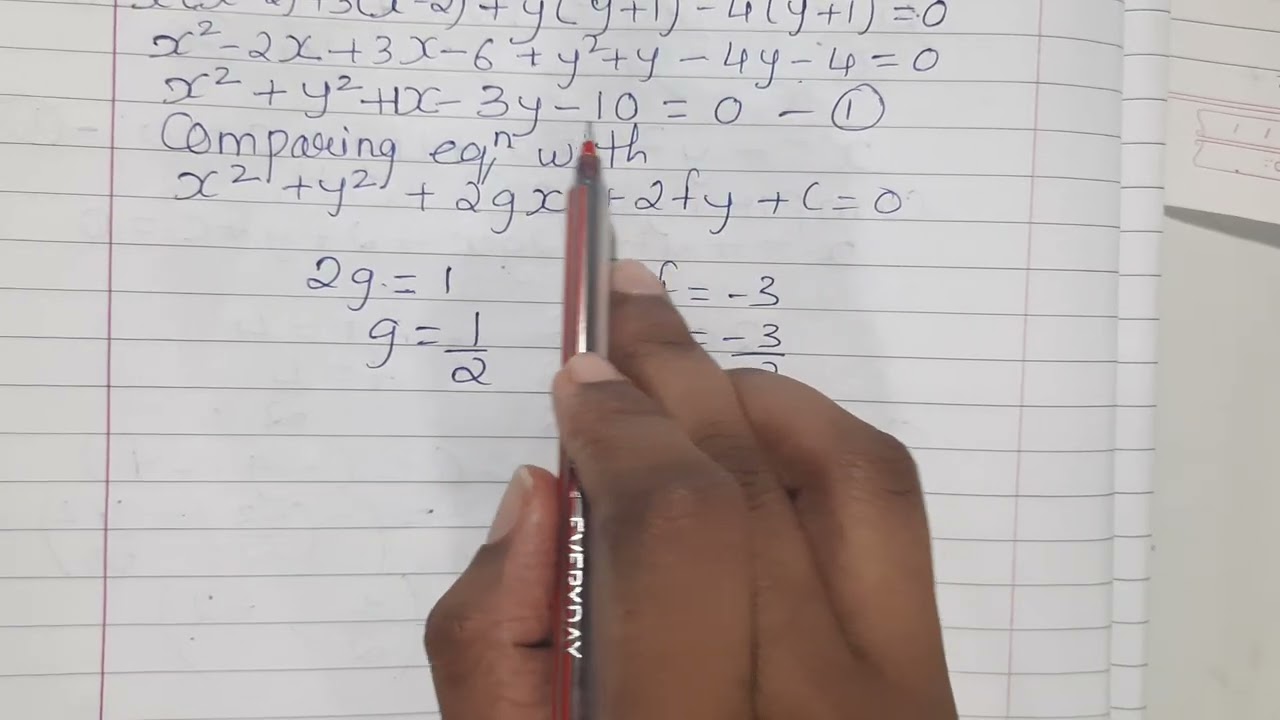 + y(y+1) - 4(y+1) = 0
x² - 2x + 3x - 6 + y² + y - 4y - 4 = 0
x² + y² + 1x - 3y - 10 = 0 - ①
Comparing eqⁿ with
x² + y² + 2gx + 2fy + C = 0
2g = 1 f = -3
g = 1/2 = -3/2
EVERYDAY